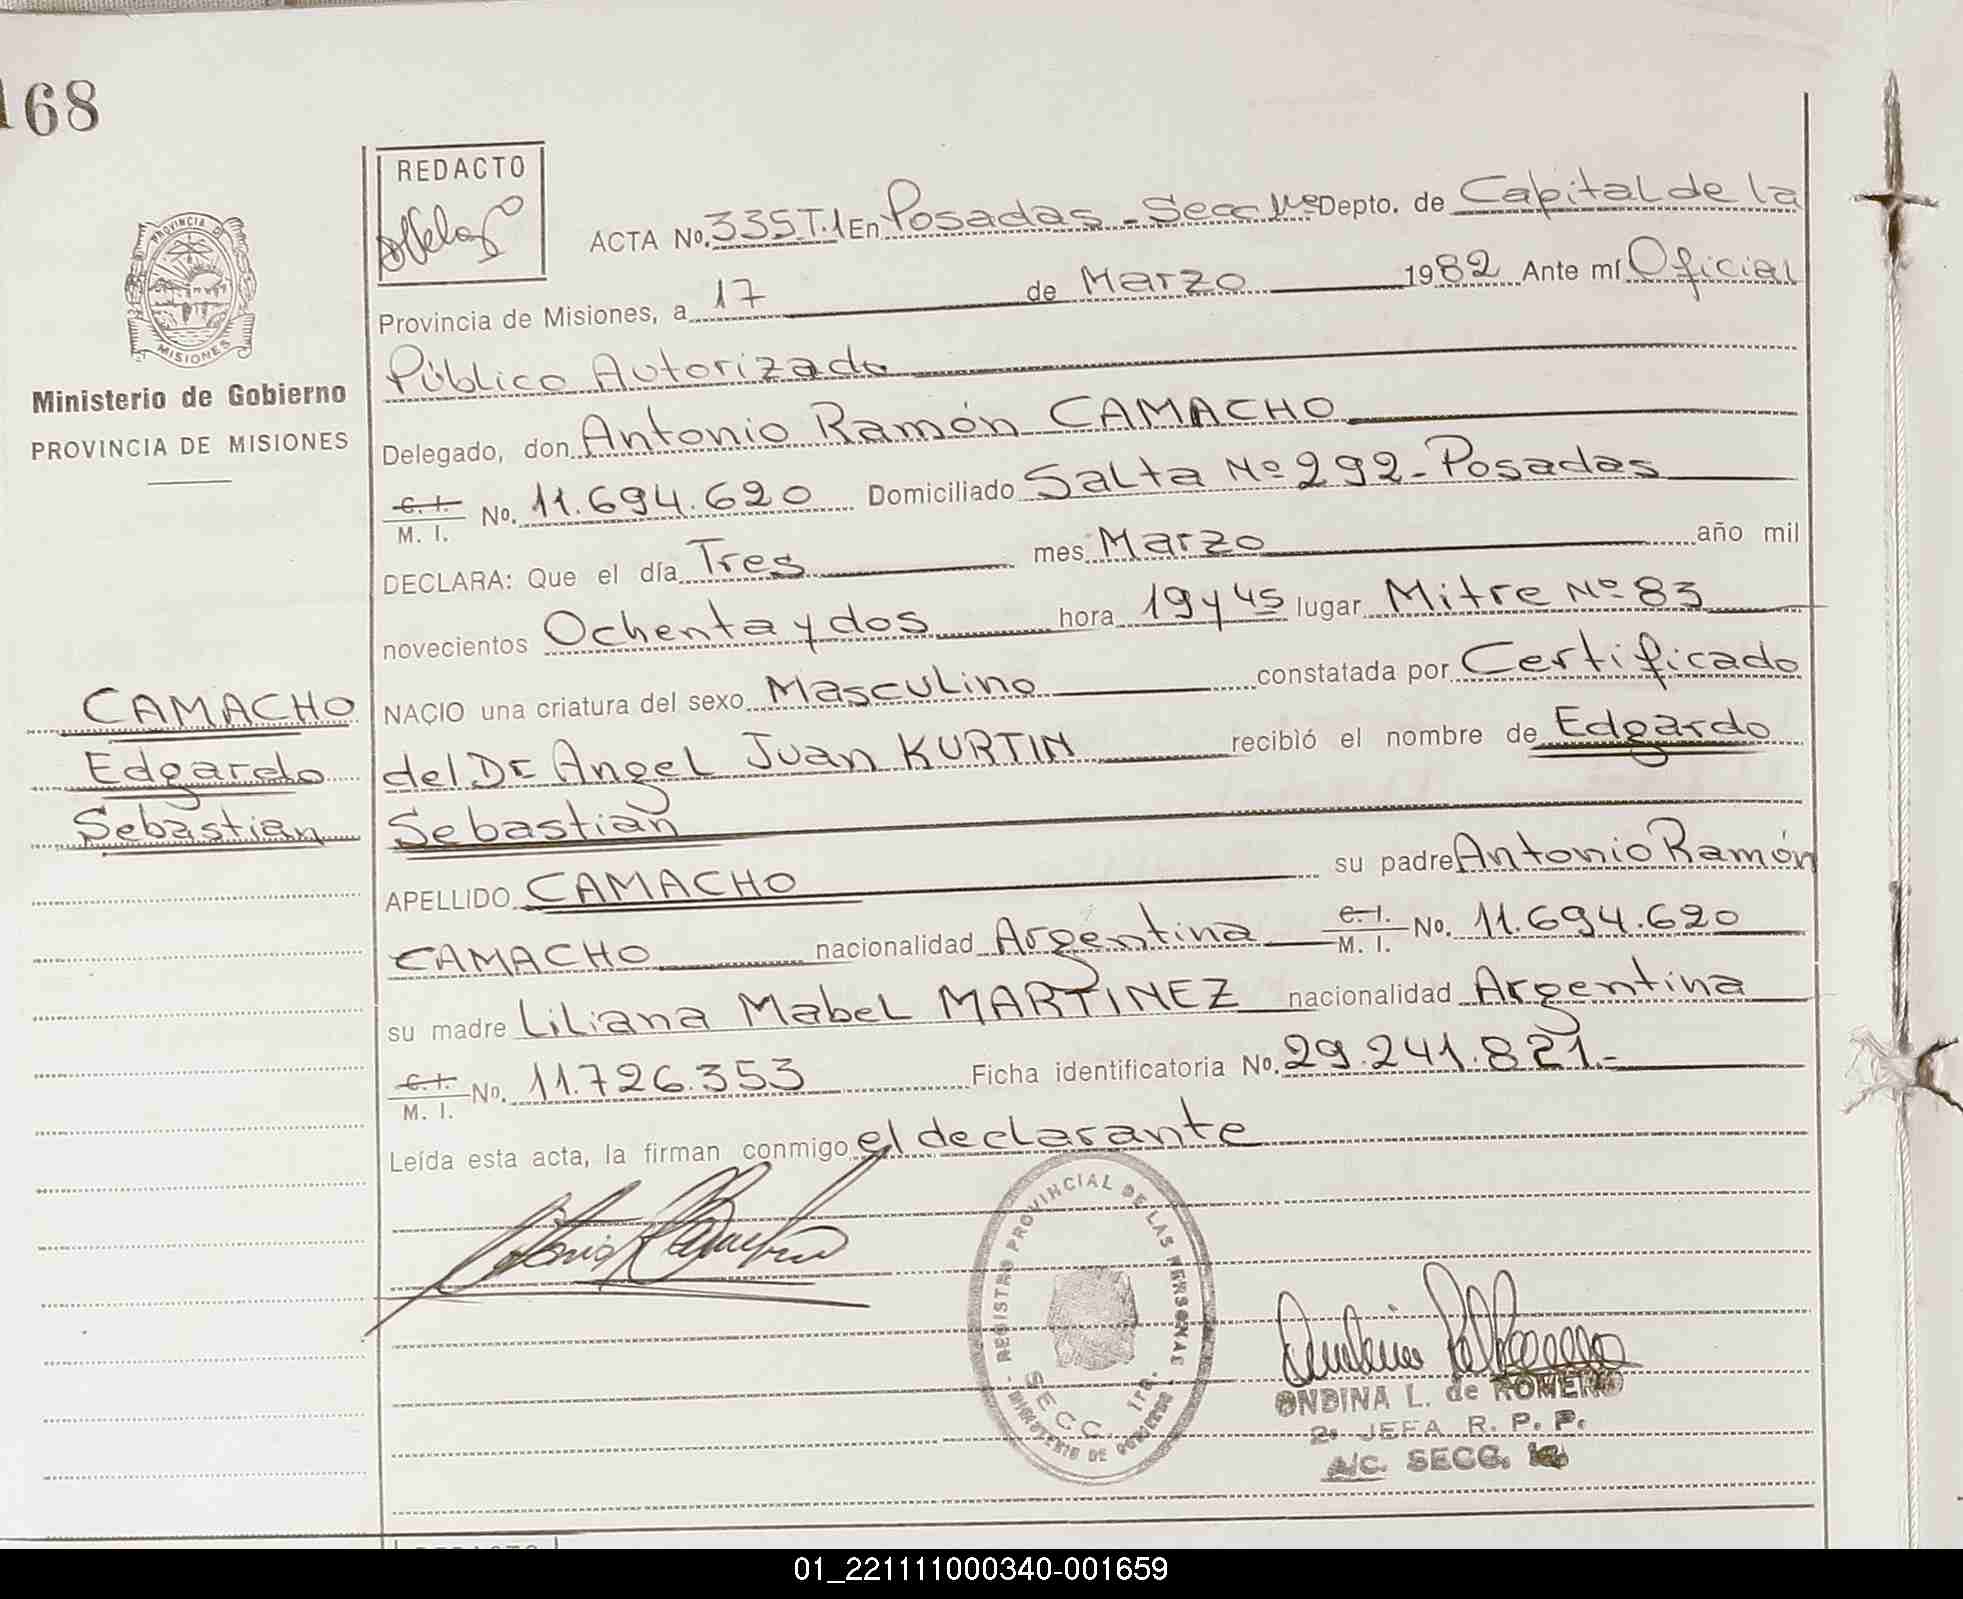 168
REDACTO
ACTA No. 335 T.1 En Posadas - Secc 1ra Depto. de Capital de la
Provincia de Misiones, a 17 de Marzo 1982 Ante mí Oficial
Público Autorizado
Delegado, don Antonio Ramón CAMACHO
C. I. / M. I. No. 11.694.620 Domiciliado Salta Nº 292 - Posadas
DECLARA: Que el día Tres mes Marzo año mil
novecientos Ochenta y dos hora 19 y 45 lugar Mitre Nº 83
NACIO una criatura del sexo Masculino constatada por Certificado
del Dr Angel Juan KURTIN recibió el nombre de Edgardo
Sebastian
APELLIDO CAMACHO su padre Antonio Ramón
CAMACHO nacionalidad Argentina C. I. / M. I. No. 11.694.620
su madre Liliana Mabel MARTINEZ nacionalidad Argentina
C. I. / M. I. No. 11.726.353 Ficha identificatoria No. 29.241.821.-
Leída esta acta, la firman conmigo el declarante
PROVINCIA DE
MISIONES
Ministerio de Gobierno
PROVINCIA DE MISIONES
CAMACHO
Edgardo
Sebastian
REGISTRO PROVINCIAL DE LAS PERSONAS
SECC. 1ra.
MINISTERIO DE GOBIERNO
ONDINA L. de ROMERO
2. JEFA R. P. P.
A/C. SECC.
01_221111000340-001659